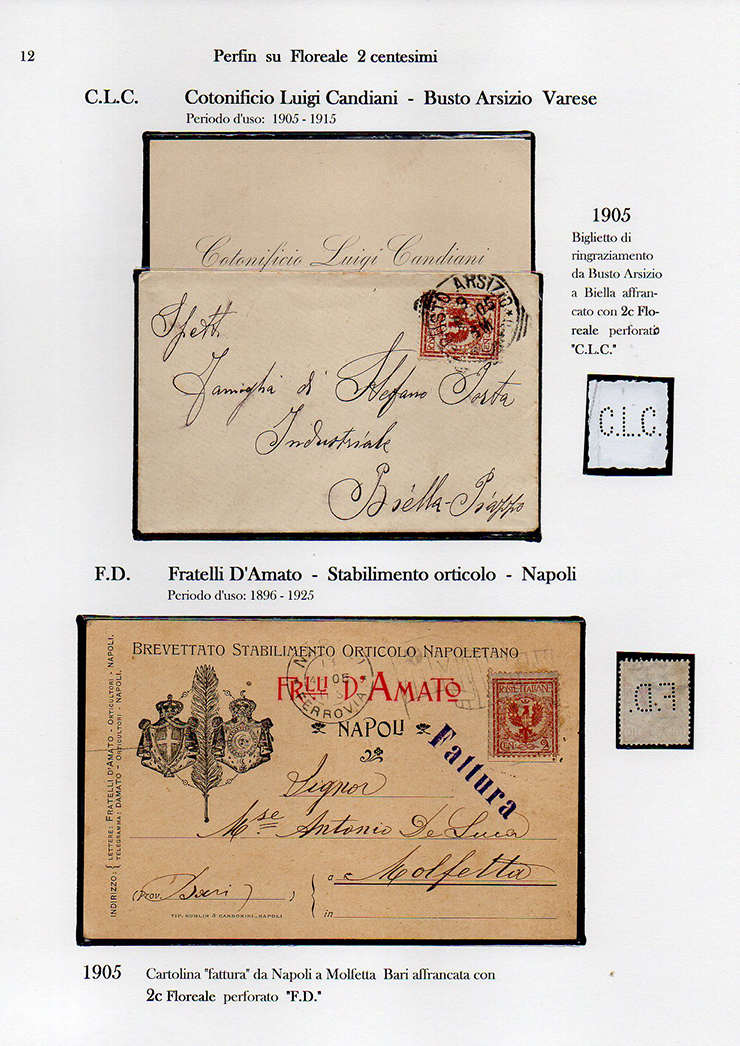 12
Perfin su Floreale 2 centesimi
C.L.C. Cotonificio Luigi Candiani - Busto Arsizio Varese
Periodo d'uso: 1905 - 1915
Cotonificio Luigi Candiani
BUSTO ARSIZIO
05
Spett.
Famiglia di Stefano Porta
Industriale
Biella-Piazzo
1905
Biglietto di
ringraziamento
da Busto Arsizio
a Biella affran-
cato con 2c Flo-
reale perforato
"C.L.C."
C.L.C.
F.D. Fratelli D'Amato - Stabilimento orticolo - Napoli
Periodo d'uso: 1896 - 1925
BREVETTATO STABILIMENTO ORTICOLO NAPOLETANO
FR.LLI D'AMATO
NAPOLI
05
FERROVIA
POSTE ITALIANE
CEN. 2
Fattura
INDIRIZZO: { LETTERE: FRATELLI D'AMATO - ORTICULTORI - NAPOLI.
TELEGRAMMA: DAMATO - ORTICULTORI - NAPOLI.
Signor
M.se Antonio De Luca
a Molfetta
(Prov. Bari)
in
TIP. GUMLIN & CARBONINI-NAPOLI
F.D.
1905 Cartolina "fattura" da Napoli a Molfetta Bari affrancata con
2c Floreale perforato "F.D."